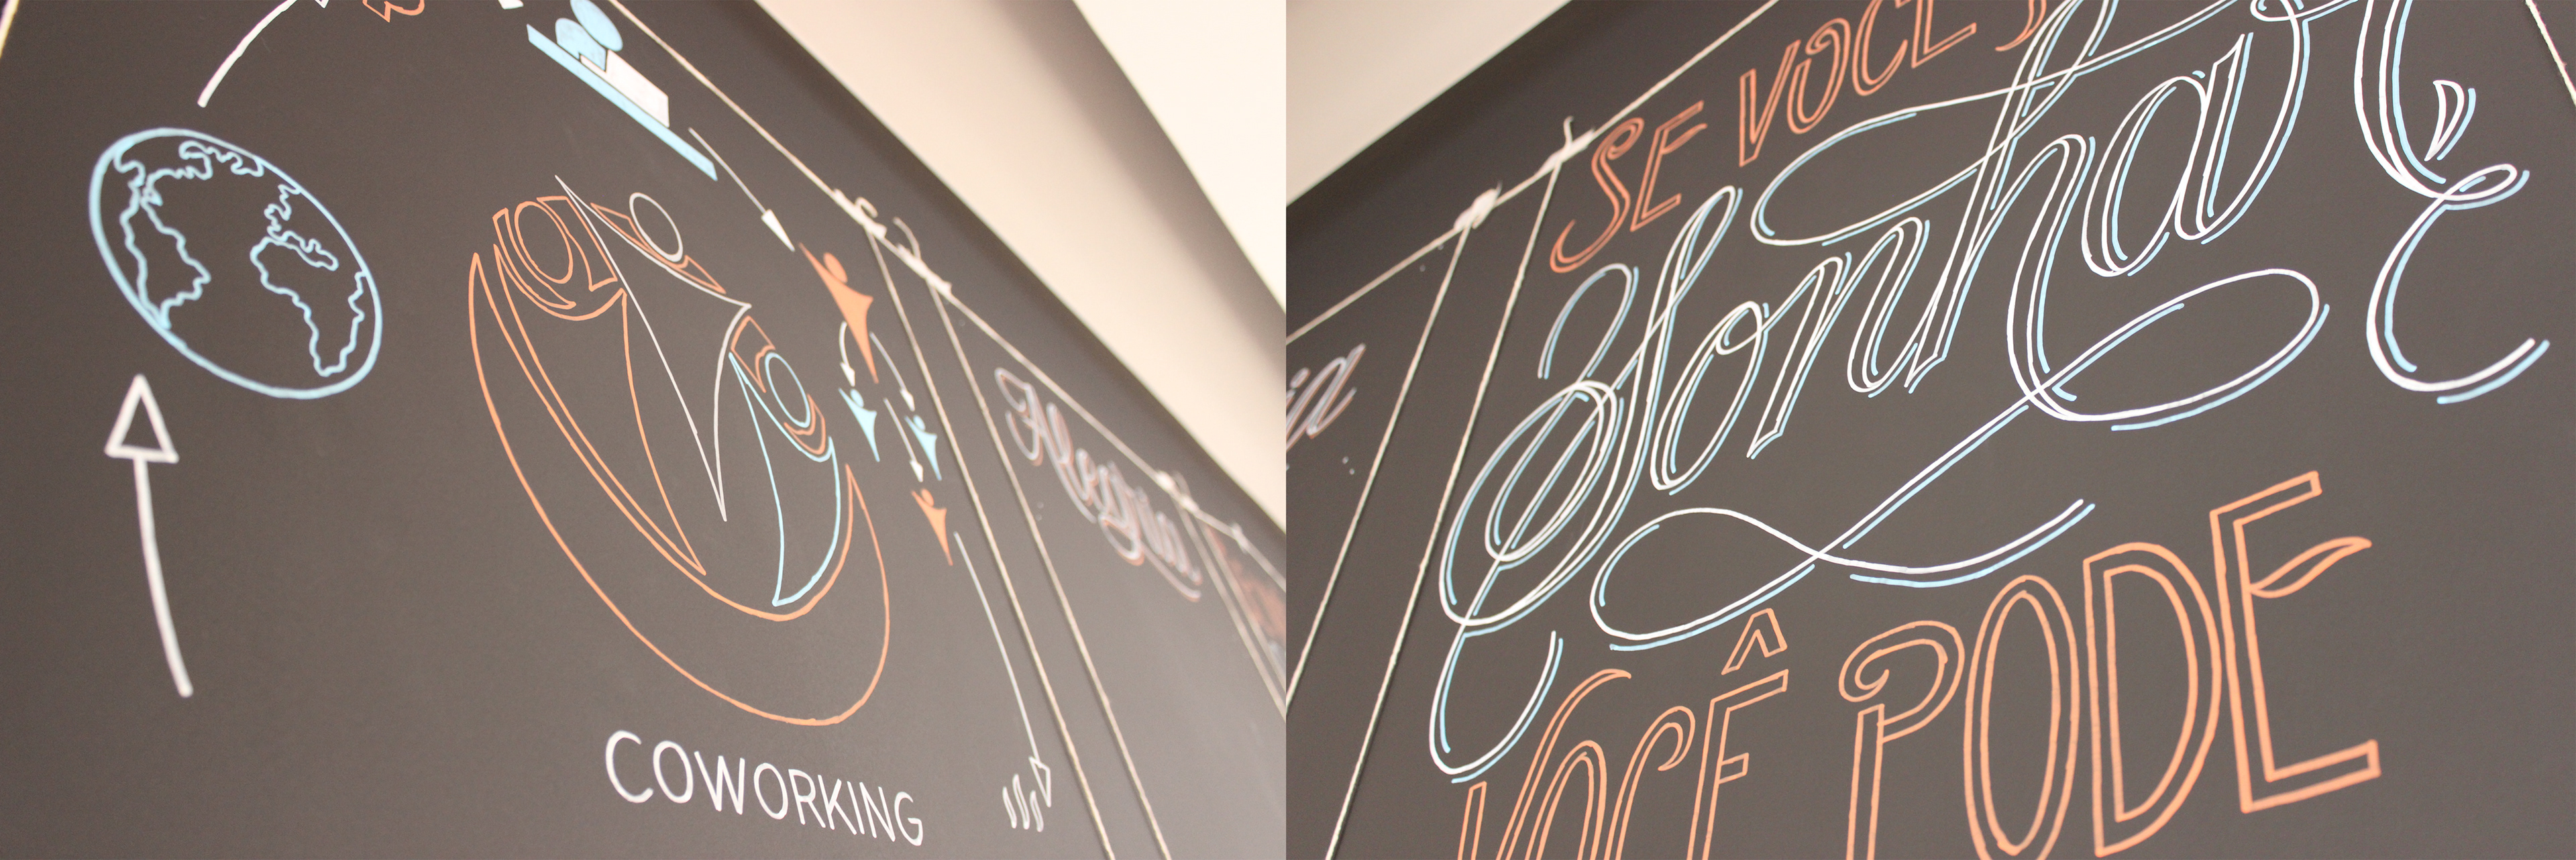 COWORKING
Alegria
SE VOCÊ
Sonhar
VOCÊ PODE